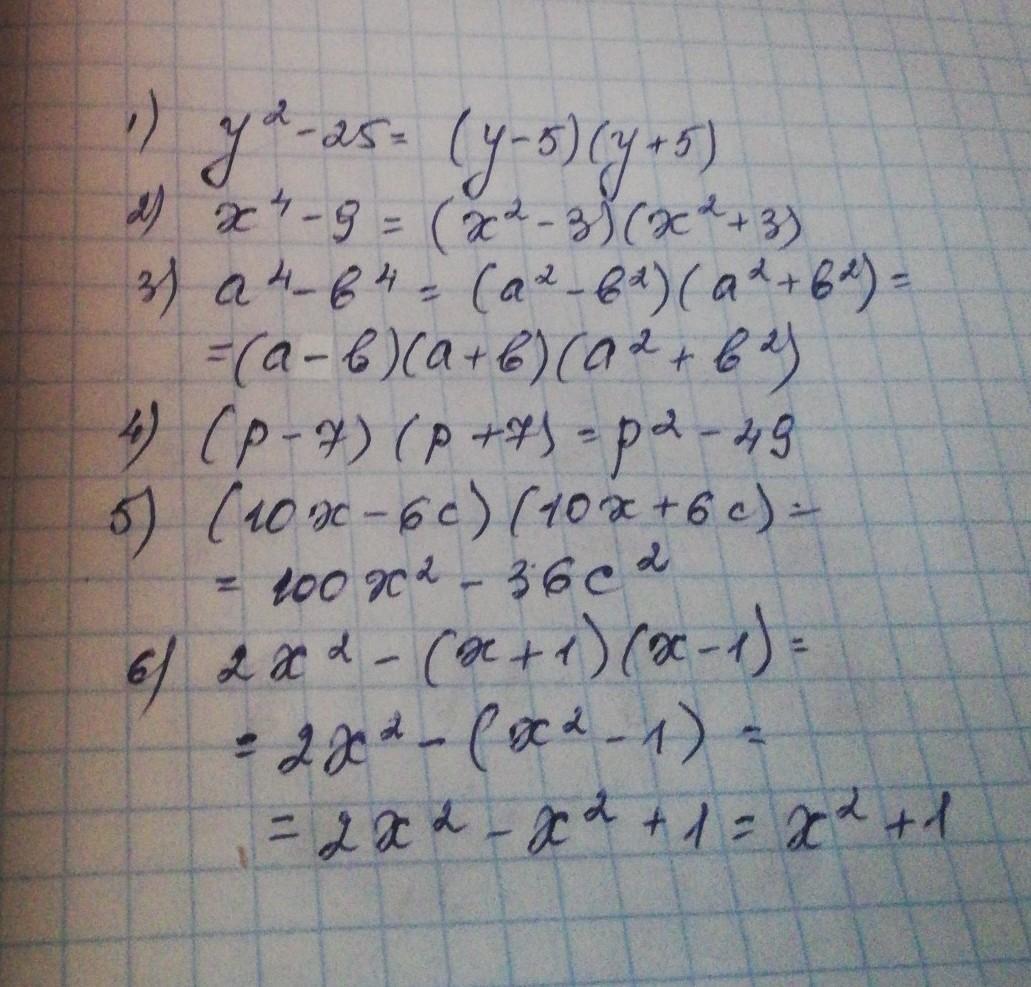 1) y² - 25 = (y - 5)(y + 5)
2) x⁴ - 9 = (x² - 3)(x² + 3)
3) a⁴ - в⁴ = (a² - в²)(a² + в²) =
= (a - в)(a + в)(a² + в²)
4) (p - 7)(p + 7) = p² - 49
5) (10x - 6c)(10x + 6c) =
= 100x² - 36c²
6) 2x² - (x + 1)(x - 1) =
= 2x² - (x² - 1) =
= 2x² - x² + 1 = x² + 1